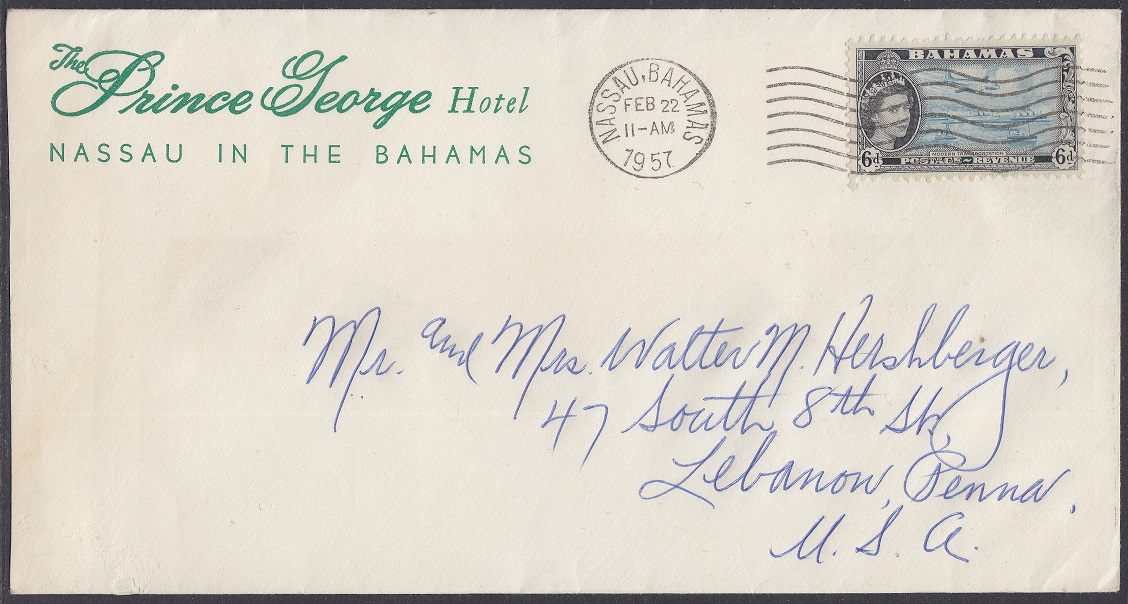 The Prince George Hotel
NASSAU IN THE BAHAMAS
NASSAU, BAHAMAS
FEB 22
11-AM
1957
BAHAMAS
6d
POSTAGE ~ REVENUE
6d
Mr. and Mrs. Walter M. Hershberger,
47 South 8th St.,
Lebanon, Penna.,
U. S. A.